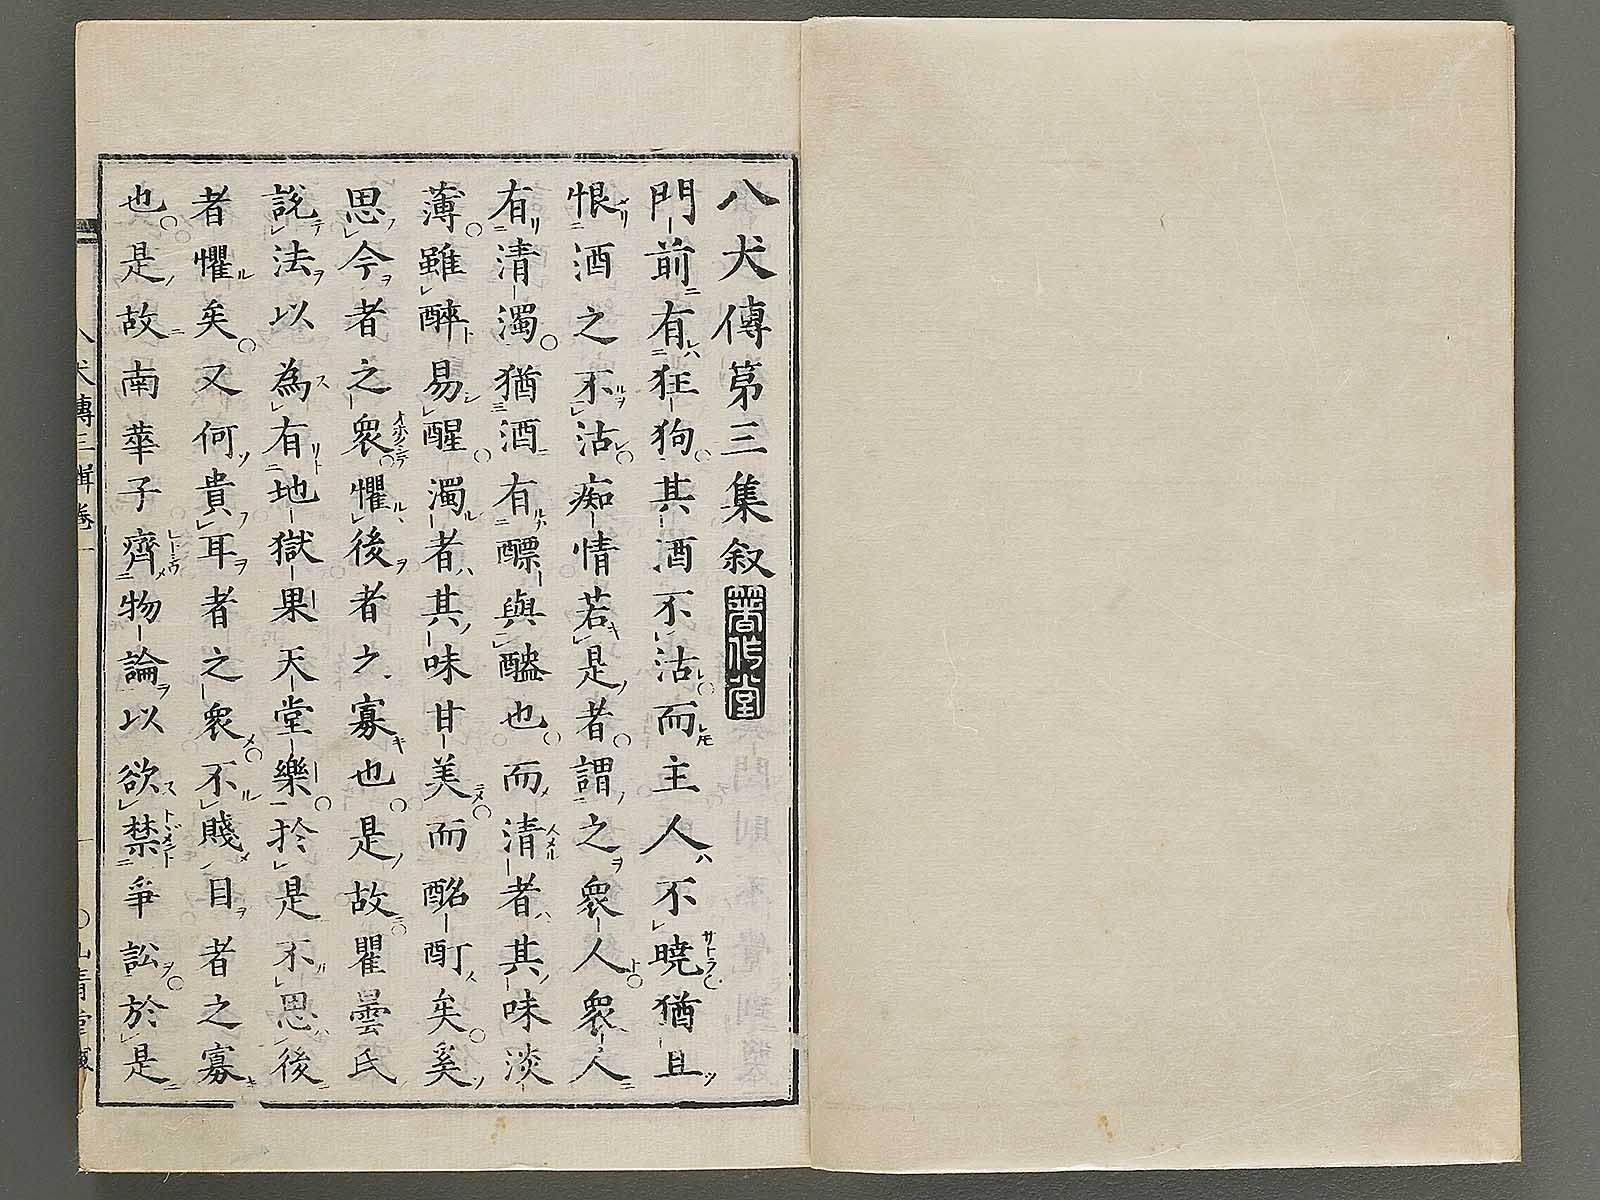 八犬傳第三集叙 著作堂
門前有狂狗其酒不沽而主人不曉猶且
恨酒之不沽痴情若是者謂之衆人衆人
有清濁猶酒有醥與醠也而清者其味淡
薄雖醉易醒濁者其味甘美而酩酊矣奚
思今者之衆懼後者之寡也是故瞿曇氏
説法以為有地獄果天堂樂於是不思後
者懼矣又何貴耳者之衆不賤目者之寡
也是故南華子齊物論以欲禁爭訟於是
八犬傳三輯卷一
一
〇山青堂